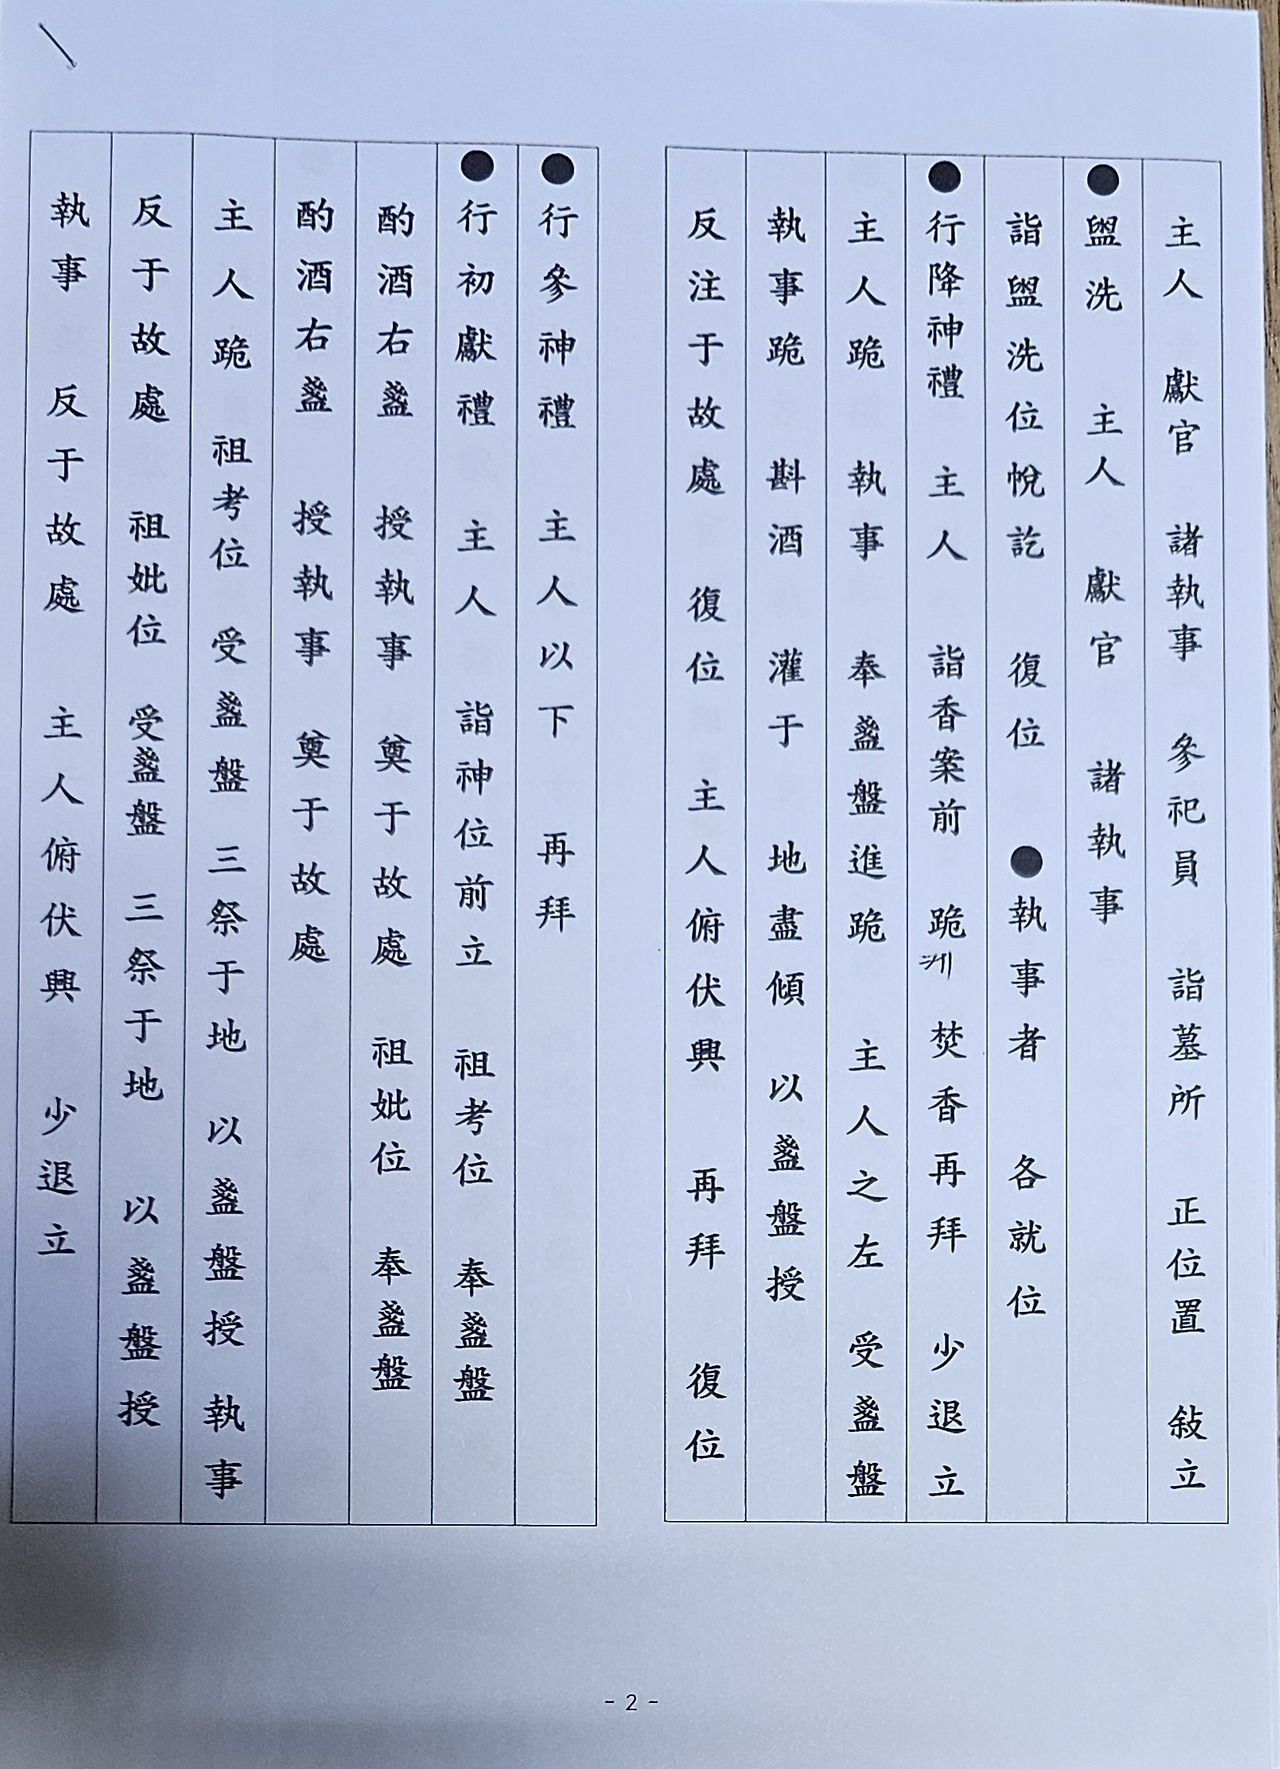 主人 獻官 諸執事 參祀員 詣墓所 正位置 敍立
●盥洗 主人 獻官 諸執事
詣盥洗位帨訖 復位 ●執事者 各就位
行降神禮 主人 詣香案前 跪 焚香再拜 少退立
主人跪 執事 奉盞盤進跪 主人之左 受盞盤
執事跪 斟酒 灌于 地盡傾 以盞盤授
反注于故處 復位 主人俯伏興 再拜 復位
●行參神禮 主人以下 再拜
●行初獻禮 主人 詣神位前立 祖考位 奉盞盤
酌酒右盞 授執事 奠于故處 祖妣位 奉盞盤
酌酒右盞 授執事 奠于故處
主人跪 祖考位 受盞盤 三祭于地 以盞盤授 執事
反于故處 祖妣位 受盞盤 三祭于地 以盞盤授
執事 反于故處 主人俯伏興 少退立
- 2 -